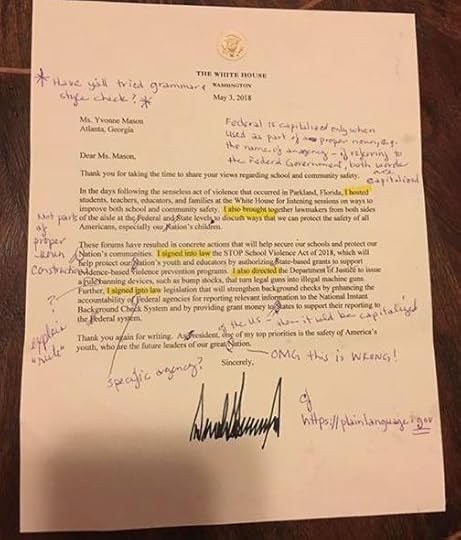 THE WHITE HOUSE
WASHINGTON
* Have y'all tried grammar &
style check? *
May 3, 2018
Ms. Yvonne Mason
Atlanta, Georgia
Federal is capitalized only when
used as part of a proper noun, e.g.
the name of an agency - if referring to
the Federal Government, both words
are capitalized
Dear Ms. Mason,
Thank you for taking the time to share your views regarding school and community safety.
In the days following the senseless act of violence that occurred in Parkland, Florida, I hosted
students, teachers, educators, and families at the White House for listening sessions on ways to
improve both school and community safety. I also brought together lawmakers from both sides
of the aisle at the Federal and State levels to discuss ways that we can protect the safety of all
Americans, especially our Nation's children.
Not part
of
proper
noun
construction
These forums have resulted in concrete actions that will help secure our schools and protect our
Nation's communities. I signed into law the STOP School Violence Act of 2018, which will
help protect our Nation's youth and educators by authorizing State-based grants to support
evidence-based violence prevention programs. I also directed the Department of Justice to issue
a rule banning devices, such as bump stocks, that turn legal guns into illegal machine guns.
Further, I signed into law legislation that will strengthen background checks by enhancing the
accountability of Federal agencies for reporting relevant information to the National Instant
Background Check System and by providing grant money to States to support their reporting to
the Federal system.
?
explain
"rule"
of the US - then it would be capitalized
Thank you again for writing. As President, one of my top priorities is the safety of America's
youth, who are the future leaders of our great Nation.
OMG this is WRONG!
specific agency?
Sincerely,
https://plainlanguage.gov